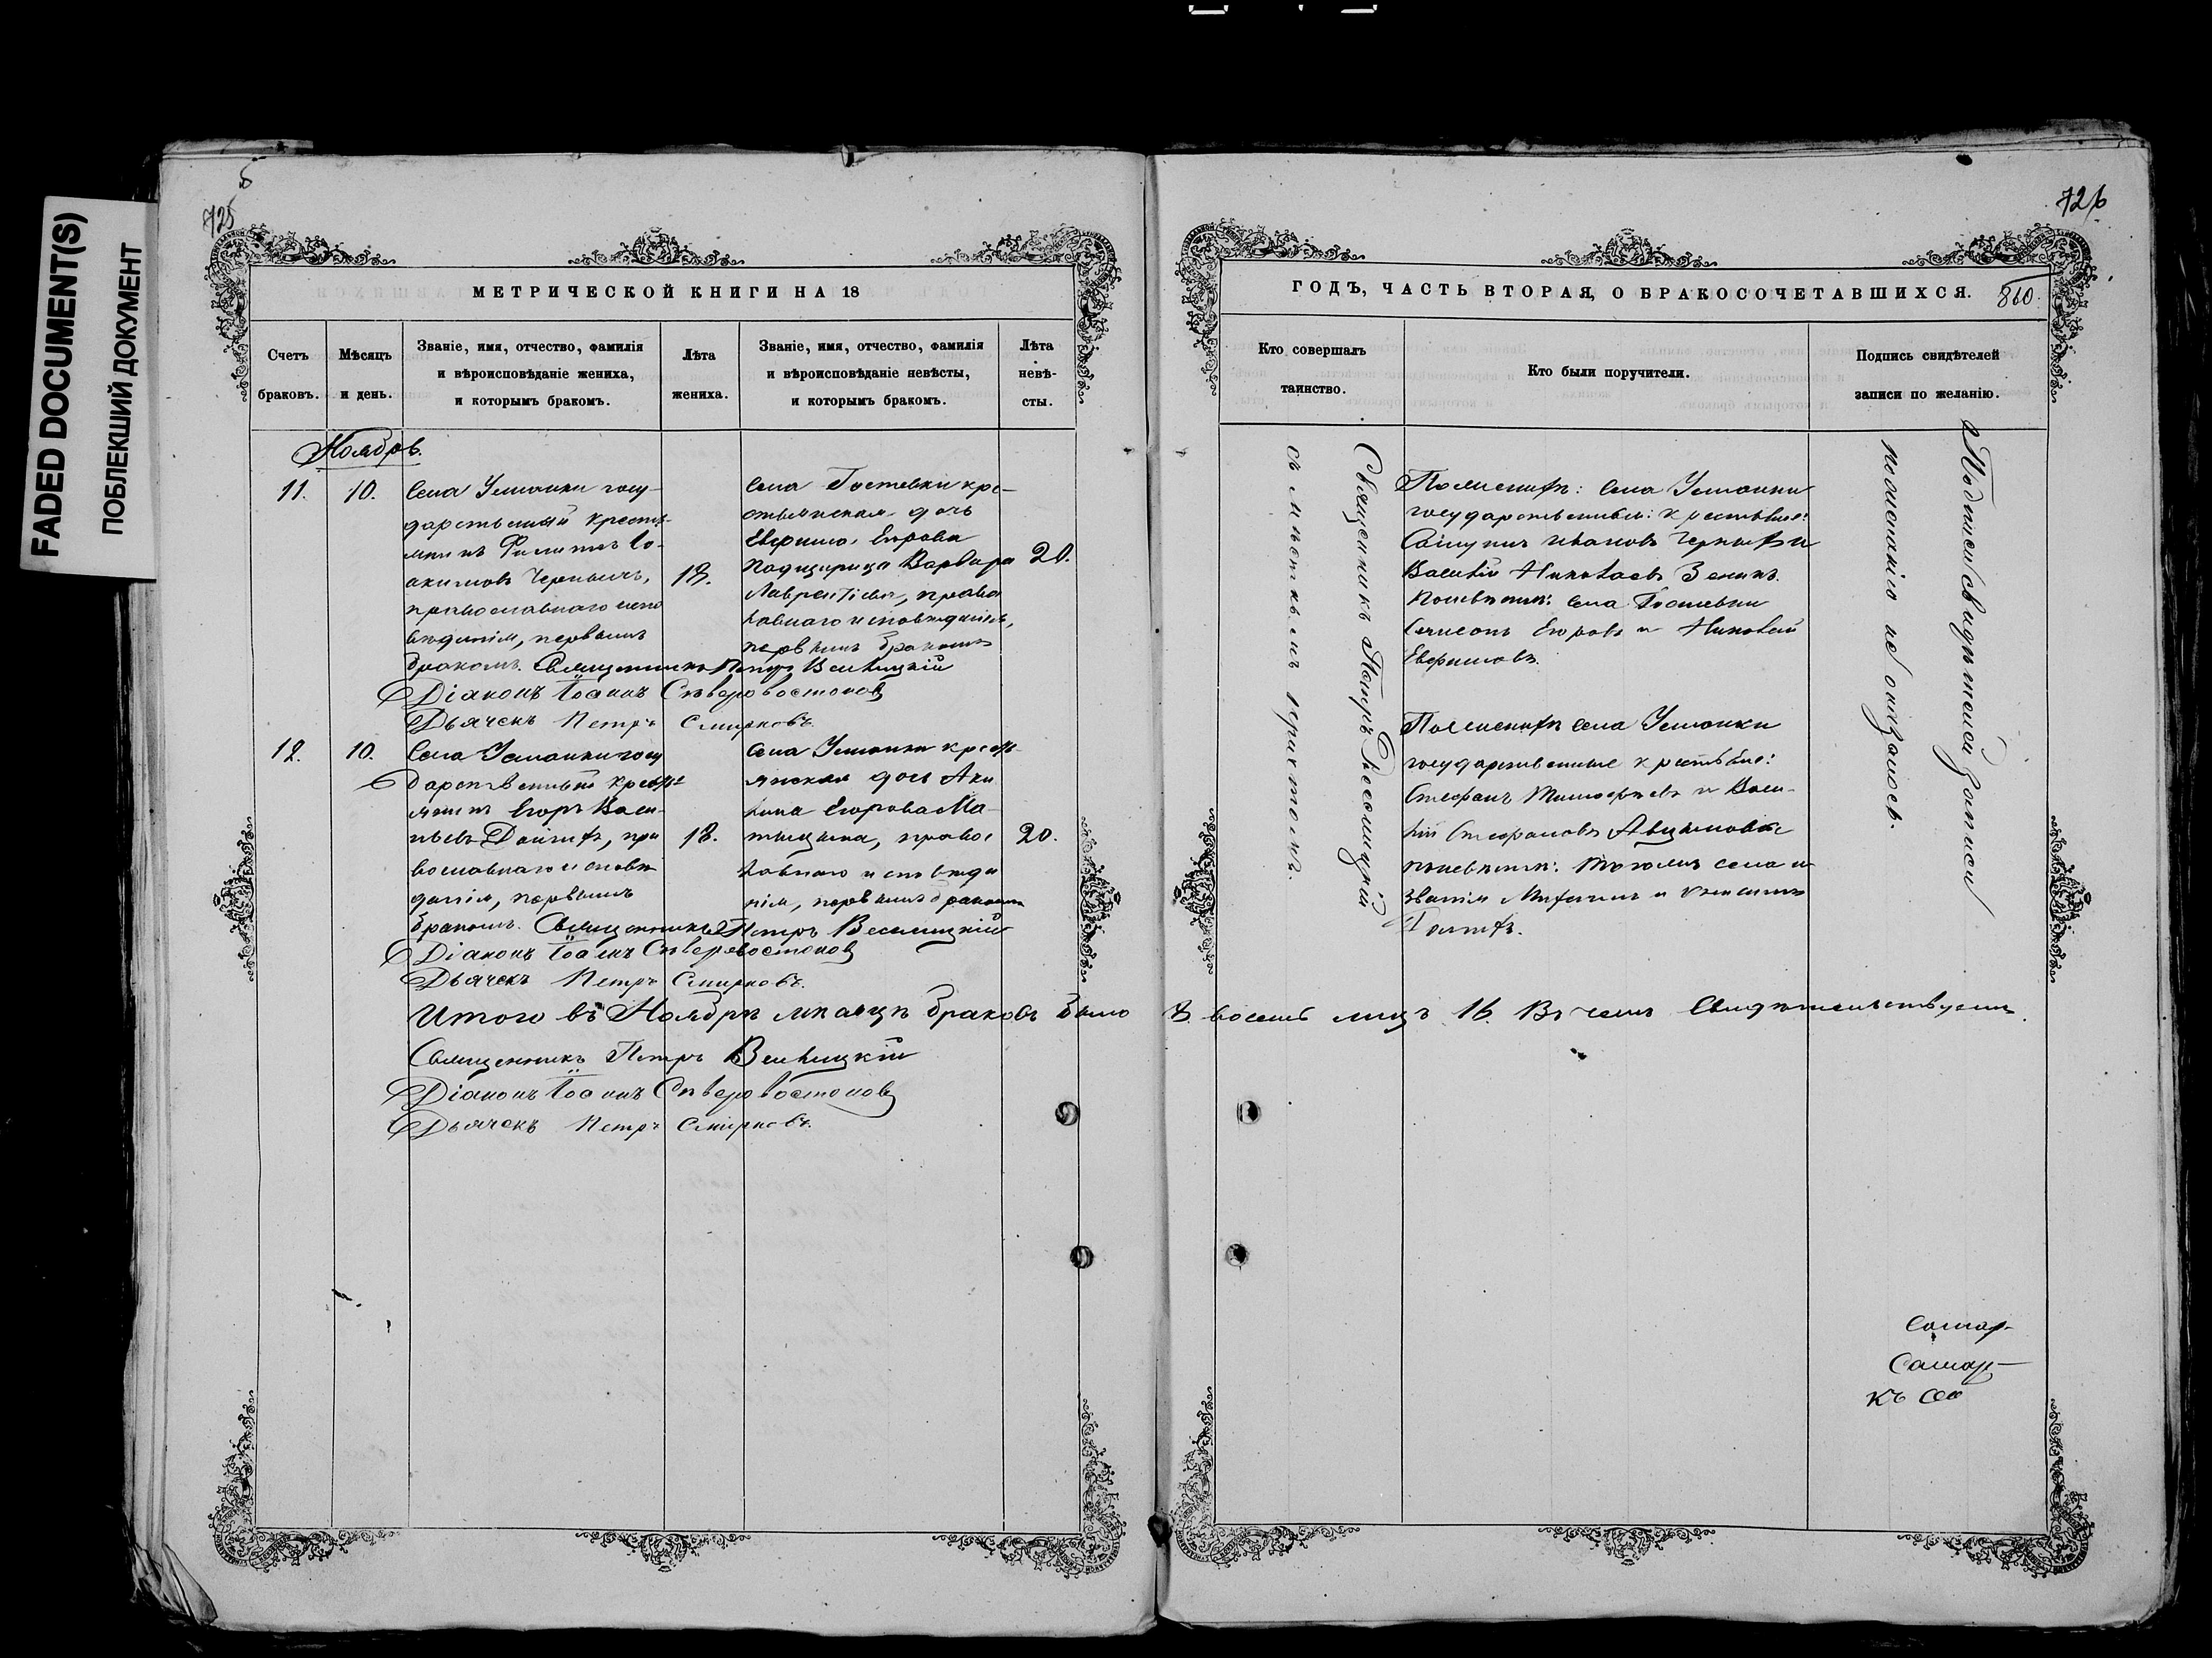 FADED DOCUMENT(S)
ПОБЛЕКШИЙ ДОКУМЕНТ
725
МЕТРИЧЕСКОЙ КНИГИ НА 18
Счетъ браковъ.
Мѣсяцъ и день.
Званіе, имя, отчество, фамилія и вѣроисповѣданіе жениха, и которымъ бракомъ.
Лѣта жениха.
Званіе, имя, отчество, фамилія и вѣроисповѣданіе невѣсты, и которымъ бракомъ.
Лѣта невѣ-сты.
Ноябрь.
11.
10.
Села Усманки госу-
дарственный кресть-
янинъ Филиппъ Іо-
акимовъ
православнаго испо
вѣданія, первымъ
бракомъ.
18.
Села Гостевки кре-
стьянская дочь
Евфимія Егорова
Падчерица Варвара
Лаврентіева, право
славнаго исповѣданія,
первымъ бракомъ
20.
Священникъ Петръ Веселицкій
Діаконъ Іоаннъ Сѣверовостоковъ
Дьячекъ Петръ Смирновъ.
12.
10.
Села Усманки госу
дарственный кресть
янинъ Егоръ Васи-
льевъ пра
вославнаго исповѣ
данія, первымъ
бракомъ.
18.
Села Усманки кресть
янская дочь Аки
лина Егорова
правос
лавнаго исповѣда
нія, первымъ бракомъ
20.
Священникъ Петръ Веселицкій
Діаконъ Іоаннъ Сѣверовостоковъ
Дьячекъ Петръ Смирновъ.
Итого въ Ноябрѣ мѣсяцѣ браковъ было 8. восемь лицъ 16. Въ чемъ свидѣтельствуемъ.
Священникъ Петръ Веселицкій
Діаконъ Іоаннъ Сѣверовостоковъ
Дьячекъ Петръ Смирновъ.
726
ГОДЪ, ЧАСТЬ ВТОРАЯ, О БРАКОСОЧЕТАВШИХСЯ.
860.
Кто совершалъ таинство.
Кто были поручители.
Подпись свидѣтелей записи по желанію.
Священникъ Петръ Веселицкій
съ мѣстнымъ причтомъ.
По женихѣ: села Усманки
государственные: крестьяне:
Иванов
Василій Николаевъ Зенинъ.
По невѣстѣ: села Гостевки
Семенъ Егоровъ и Николай
Евфимовъ.
По женихѣ села Усманки
государственные крестьяне:
Стефанъ Тимофеевъ и Васи-
лій Стефановъ
по невѣстѣ: того же села и
званія
Подписи свидѣтелей записи
по желанію не оказалось.
Самар-
Самар-
къ сел